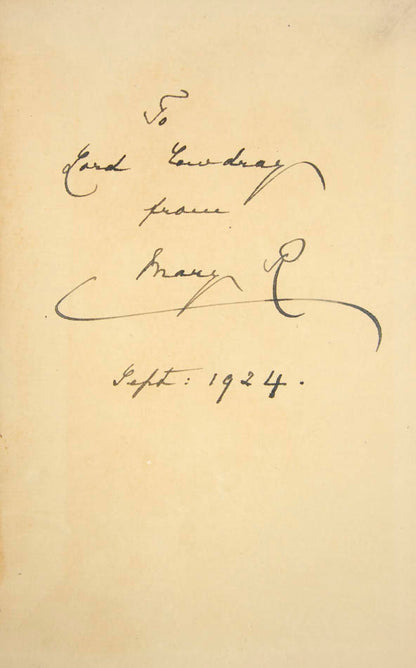 To
Lord Cowdray
from
Mary R
Sept: 1924.